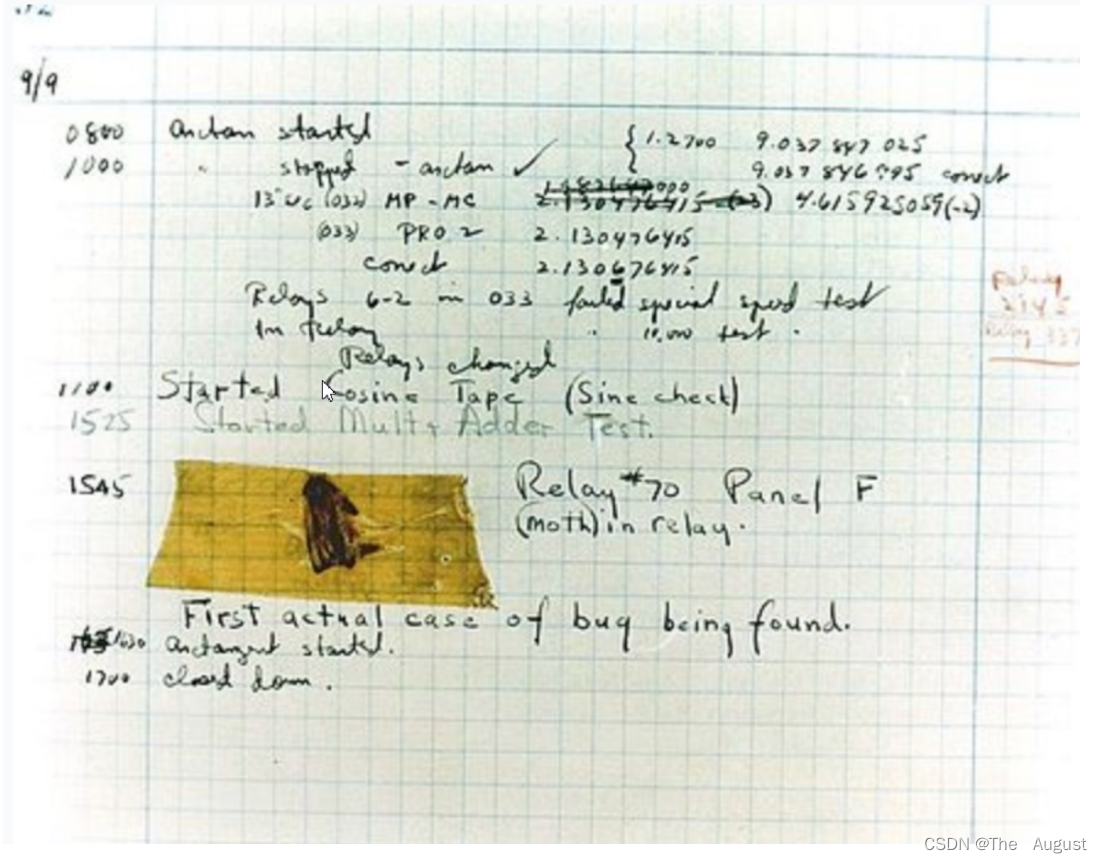 9/9
0800 Antan started
1000 " stopped - antan ✓ { 1.2700 9.037 847 025
9.037 846 995 correct
13"UC (032) MP - MC 2.130476415 (-3) 4.615925059(-2)
(033) PRO 2 2.130476415
correct 2.130676415
Relays 6-2 in 033 failed special speed test
In Relay " 10,000 test .
Relay
2145
Relay 337
Relays changed
1100 Started Cosine Tape (Sine check)
1525 Started Mult+ Adder Test.
1545 Relay #70 Panel F
(moth) in relay.
First actual case of bug being found.
1630 Antangent started.
1700 closed down .
CSDN @The August